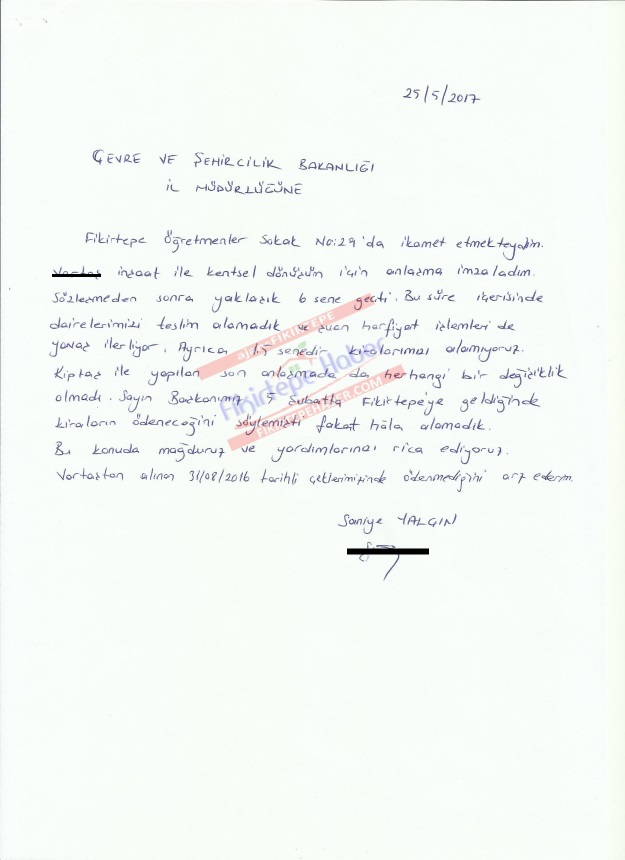 25/5/2017
ÇEVRE VE ŞEHİRCİLİK BAKANLIĞI
İL MÜDÜRLÜĞÜNE
Fikirtepe Öğretmenler Sokak No:29'da ikamet etmekteydim.
inşaat ile kentsel dönüşüm için anlaşma imzaladım.
Sözleşmeden sonra yaklaşık 6 sene geçti. Bu süre içerisinde
dairelerimizi teslim alamadık ve şuan harfiyat işlemleri de
yavaş ilerliyor. Ayrıca 1,5 senedir kiralarımızı alamıyoruz.
Kiptaş ile yapılan son anlaşmada da herhangi bir değişiklik
olmadı. Sayın Başkanımız 5 Şubatta Fikirtepe'ye geldiğinde
kiraların ödeneceğini söylemişti fakat hâla alamadık.
Bu konuda mağduruz ve yardımlarınızı rica ediyoruz.
Vartaştan alınan 31/08/2016 tarihli çeklerimizinde ödenmediğini arz ederim.
Saniye YALÇIN
FİKİRTEPE
Fikirtepe Haber
FIKIRTEPEHABER.COM